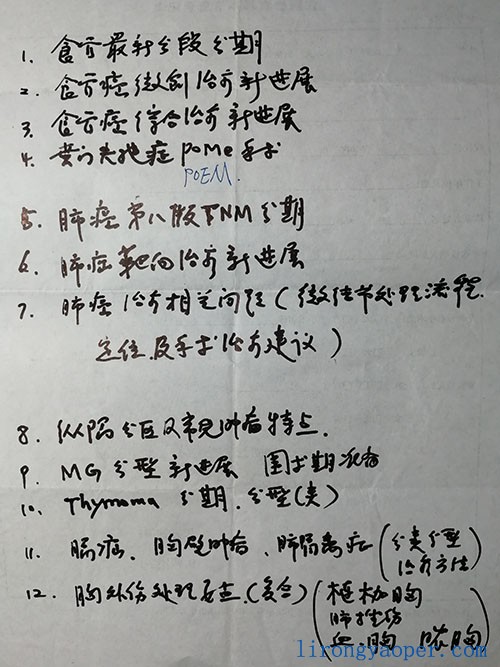 1. 食管最新分段分期
2. 食管癌微创治疗新进展
3. 食管癌综合治疗新进展
4. 贲门失弛症 POME 手术
POEM.
5. 肺癌第八版TNM分期
6. 肺癌靶向治疗新进展
7. 肺癌治疗相关问题(微结节处理流程.
定位及手术治疗建议)
8. 纵隔分区及常见肿瘤特点.
9. MG分型新进展 围手术期
10. Thymoma 分期.分型(类)
11. 胸壁肿瘤、肺隔离症(分类分型
治疗方法
12. 胸外伤处理要点.(复合)(连枷胸
肺挫伤
血胸 脓胸
lirongyaoper.com